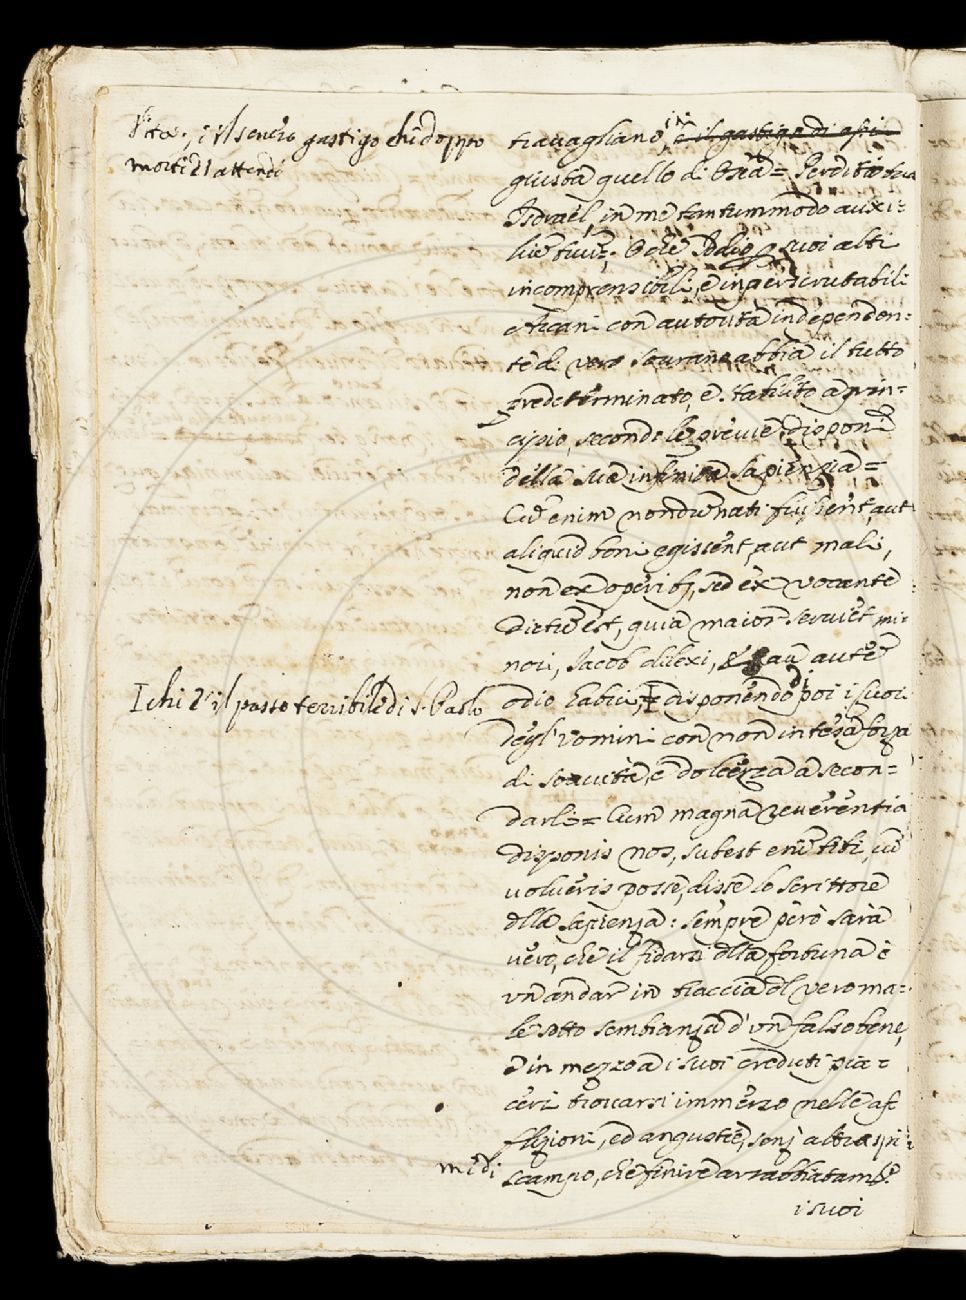 Vita; i il seuero gastigo chi doppo
morte l'attende
trauagliano, è il gastigo di assi
giusta quello di Osea= Perditio tua
Isdrael, in me tantummodo auxi=
lium tuum; che Iddio suoi alti
incomprensibili, è inperscrutabili
Arcani con autorità independen=
te di vero sourano abbia il tutto
predeterminato, è stabilito a prin=
cipio, secondo le preuie disposni
della sua infinita sapienzia=
Cum enim nondum nati fuissent, aut
aliquid boni egissent, aut mali,
non ex operibus, sed ex vocante
dictum est, quia maior seruiet mi=
nori, Jacob dilexi, Esau autem
odio habui, disponendo poi i suoi
degl'vomini con non intesa forza
di soauità, è dolcezza a secon=
darlo= Cum magna reuerentia
disponis nos, subest enim tibi, cum
volueris posse, disse lo scrittore
della sapienza: sempre però sarà
vero, che il fidarsi della fortuna è
vn andar in traccia del vero ma=
le sotto sembianza d'vn falso bene,
è in mezzo a i suoi creduti pia=
ceri trouarsi immerso nelle af=
flizioni, ed angustie, senz'altro
scampo, che finire arrabbiatamte
i suoi
I chi è il passo terribile di S. Paolo